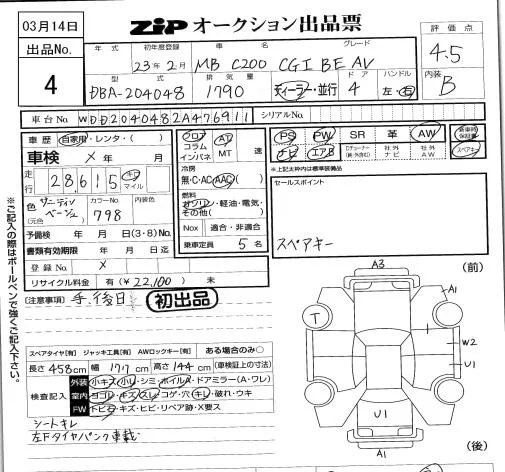 03月14日
ZIP オークション出品票
評価点
4.5
出品No.
4
年式 初年度登録 車名 グレード
23年2月 MB C200 CGI BE AV
型式 排気量 ドア ハンドル
DBA-204048 1790 ディーラー・並行 4 左・右
内装
B
車台No. WDD2040482A476911 シリアルNo.
車歴 自家用・レンタ・( )
車検 × 年 月
走行 28,615 キロ マイル
色 サニディンベージュ (元色) カラーNo. 798 内装色
予備検 年 月 日(3・8)No.
書類有効期限 年 月 日迄
登録No. ×
リサイクル料金 有(¥22,100) 未
フロア コラム インパネ AT MT 速
冷房
無・C・AC・AAC( )
燃料
ガソリン・軽油・電気・その他( )
Nox 適合・非適合
乗車定員 5 名
PS PW SR 革 AW 新車時保証書
ナビ エアB Dチューナー(純・外含む) 社外ナビ 社外AW スペアキー
※上記太枠内は標準装備品
セールスポイント
スペアキー
(注意事項) 手、後日
初出品
スペアタイヤ[有] ジャッキ工具[有] AWロックキー[有] ある場合のみ○
長さ 458cm 幅 177cm 高さ 144cm (車検証上の寸法)
検査記入
外装 小キズ・小凹・シミ・ボイルA・ドアミラー(A・ワレ)
室内 ヨゴレ・キズ・スレ・コゲ・穴・キレ・破れ・ウキ
FW トビ石・キズ・ヒビ・リペア跡・X要ス
シートキレ
左Fタイヤパンク車載
※ご記入の際はボールペンで強くご記入下さい。
A3
(前)
A1
T
W2
U1
U1
A1
(後)